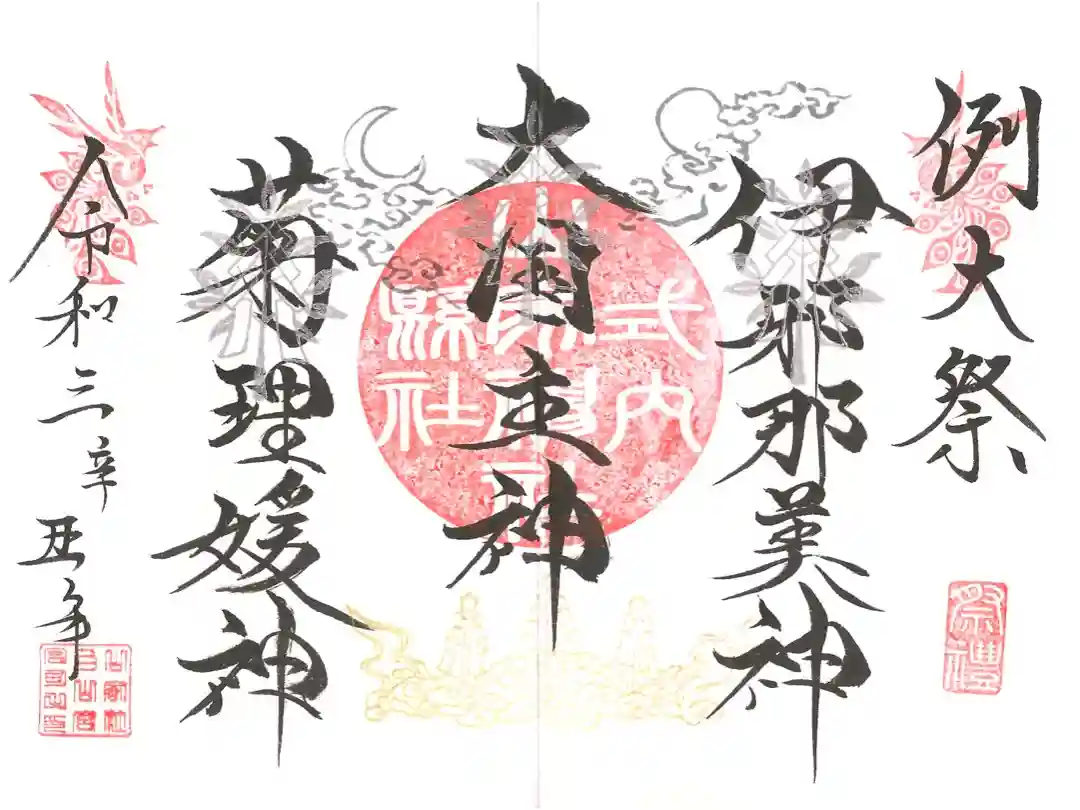 例大祭
伊邪那美神
大国主神
菊理媛神
令和三辛丑年
式内
縣社
祭禮